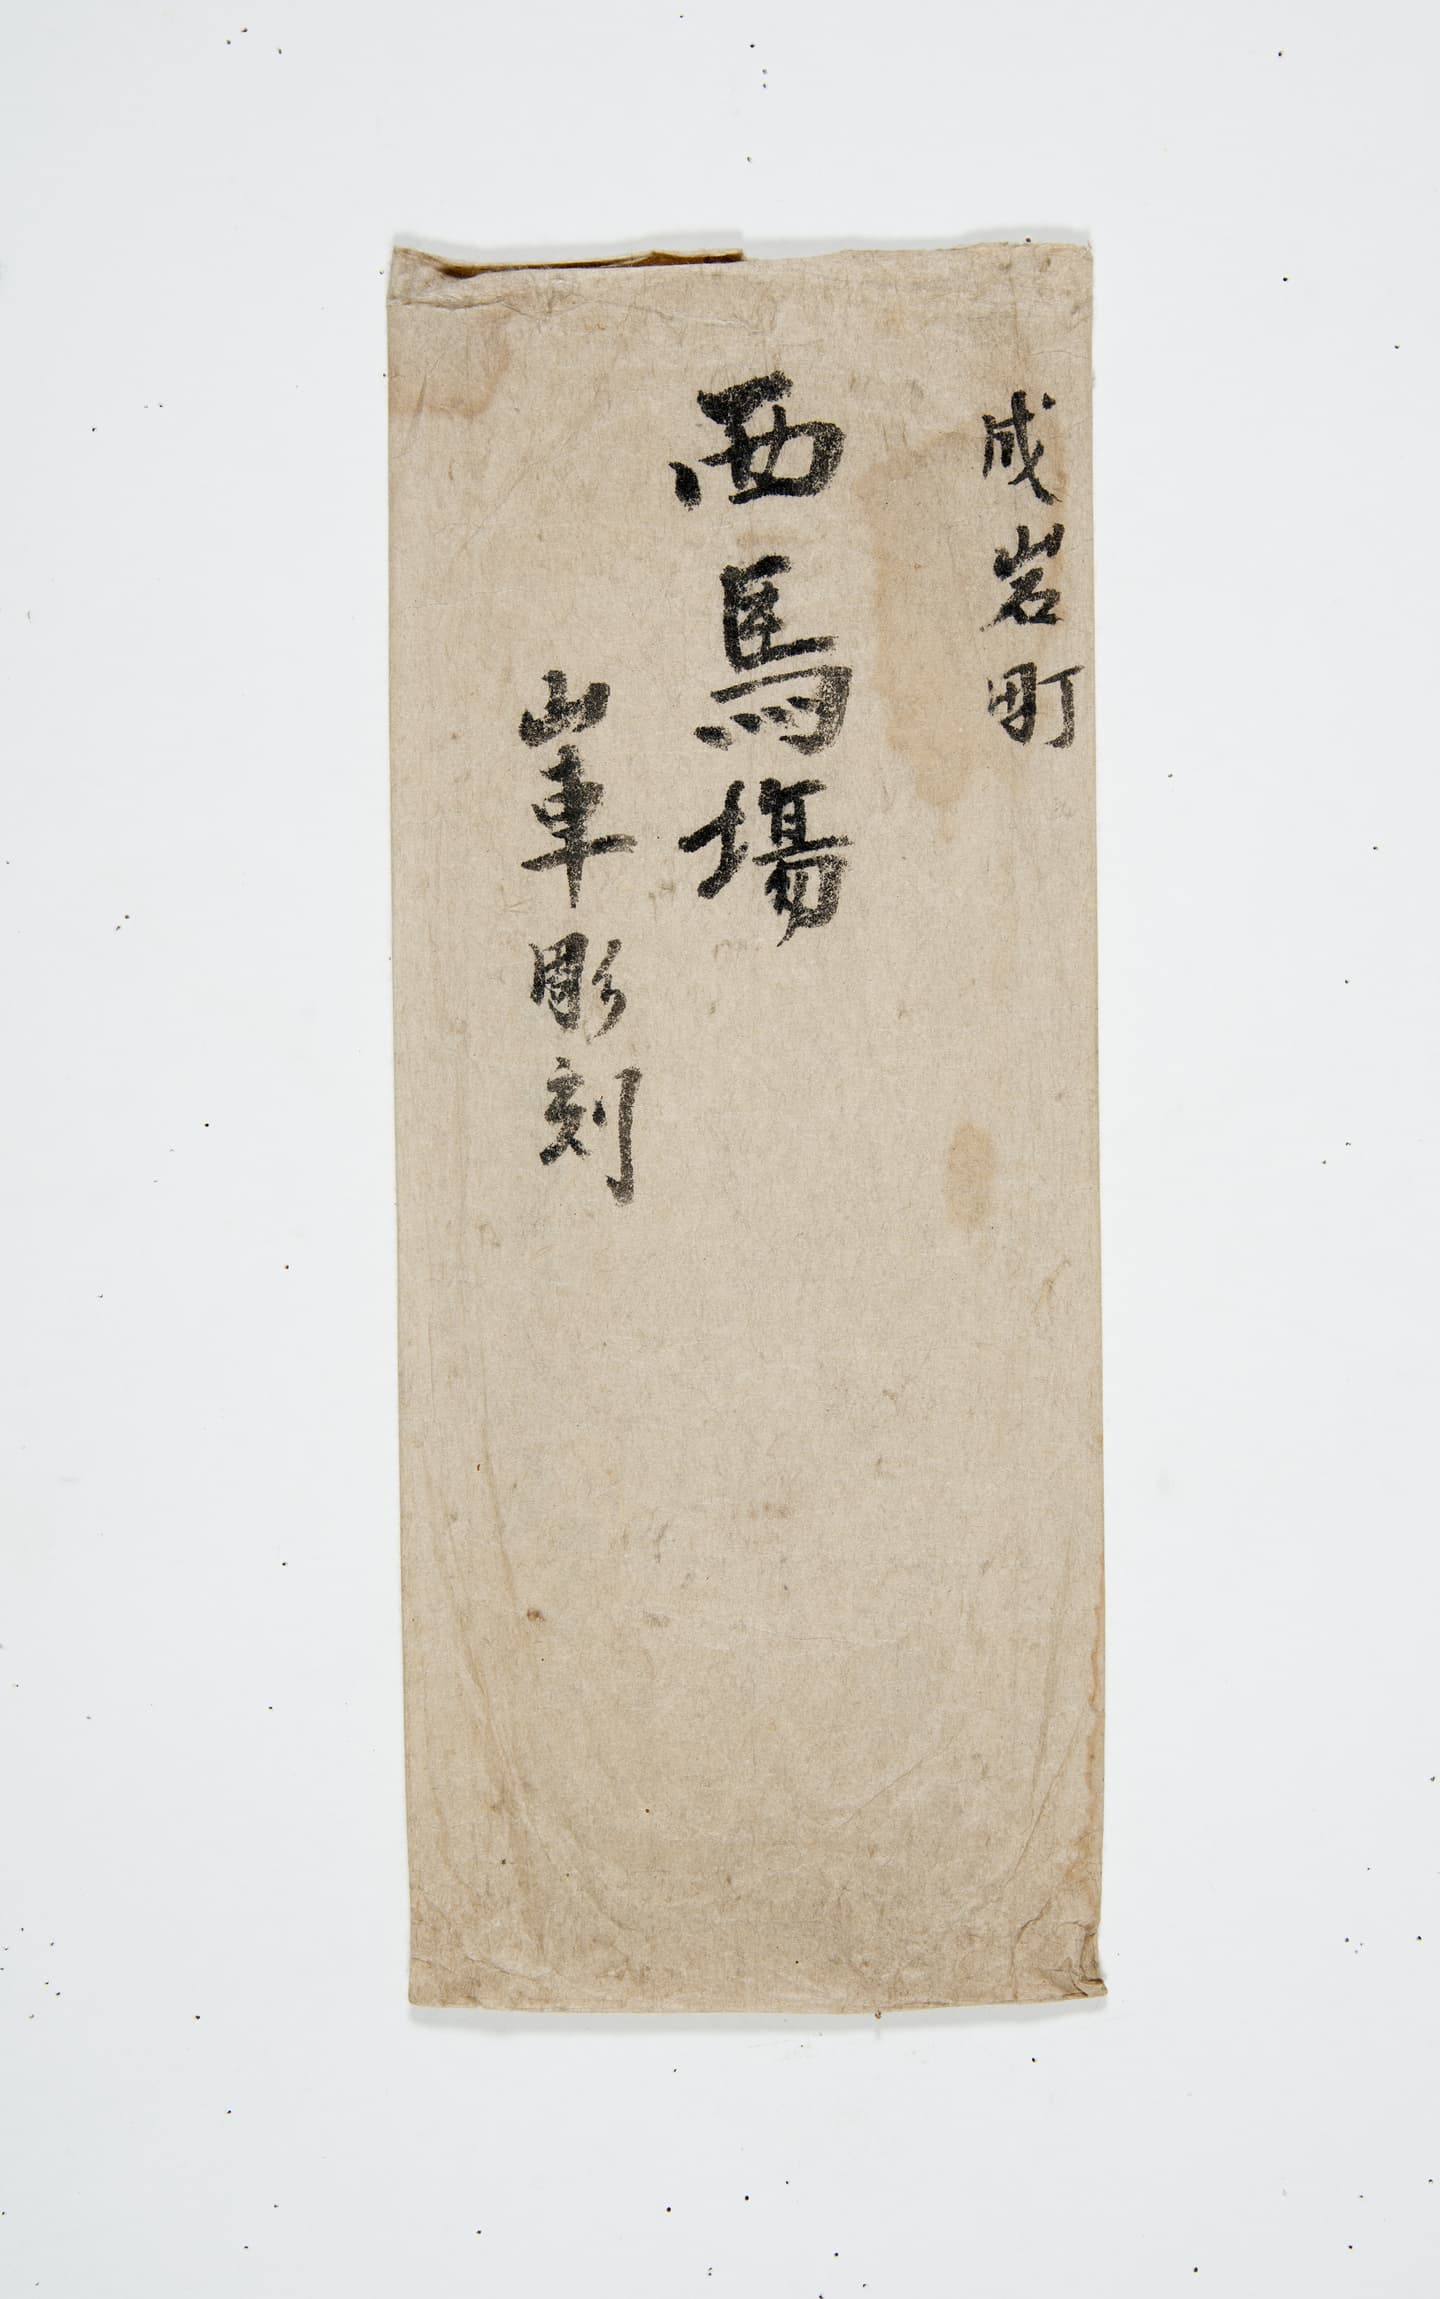 成岩町
西馬場
山車彫刻